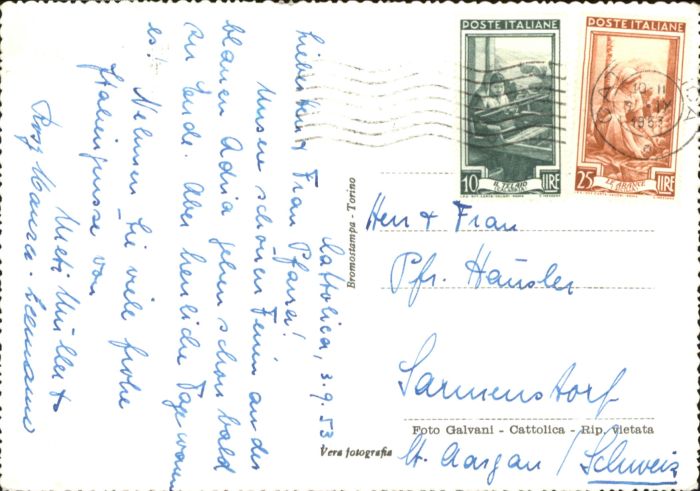 Cattolica, 3.9.53
Lieber Herr & Frau Pfarrer!
Unsere schönen Ferien an der
blauen Adria gehen schon bald
zu Ende. Aber herrliche Tage waren
es!
Nehmen Sie viele frohe
Feriengrüsse von
Müller &
POSTE ITALIANE
10 LIRE
IL TELAIO
POSTE ITALIANE
25 LIRE
LE ARANCE
10-11
1953
Herr & Frau
Pfr. Häusler
Sarmenstorf
Kt. Aargau / Schweiz
Bromostampa - Torino
Vera fotografia
Foto Galvani - Cattolica - Rip. vietata